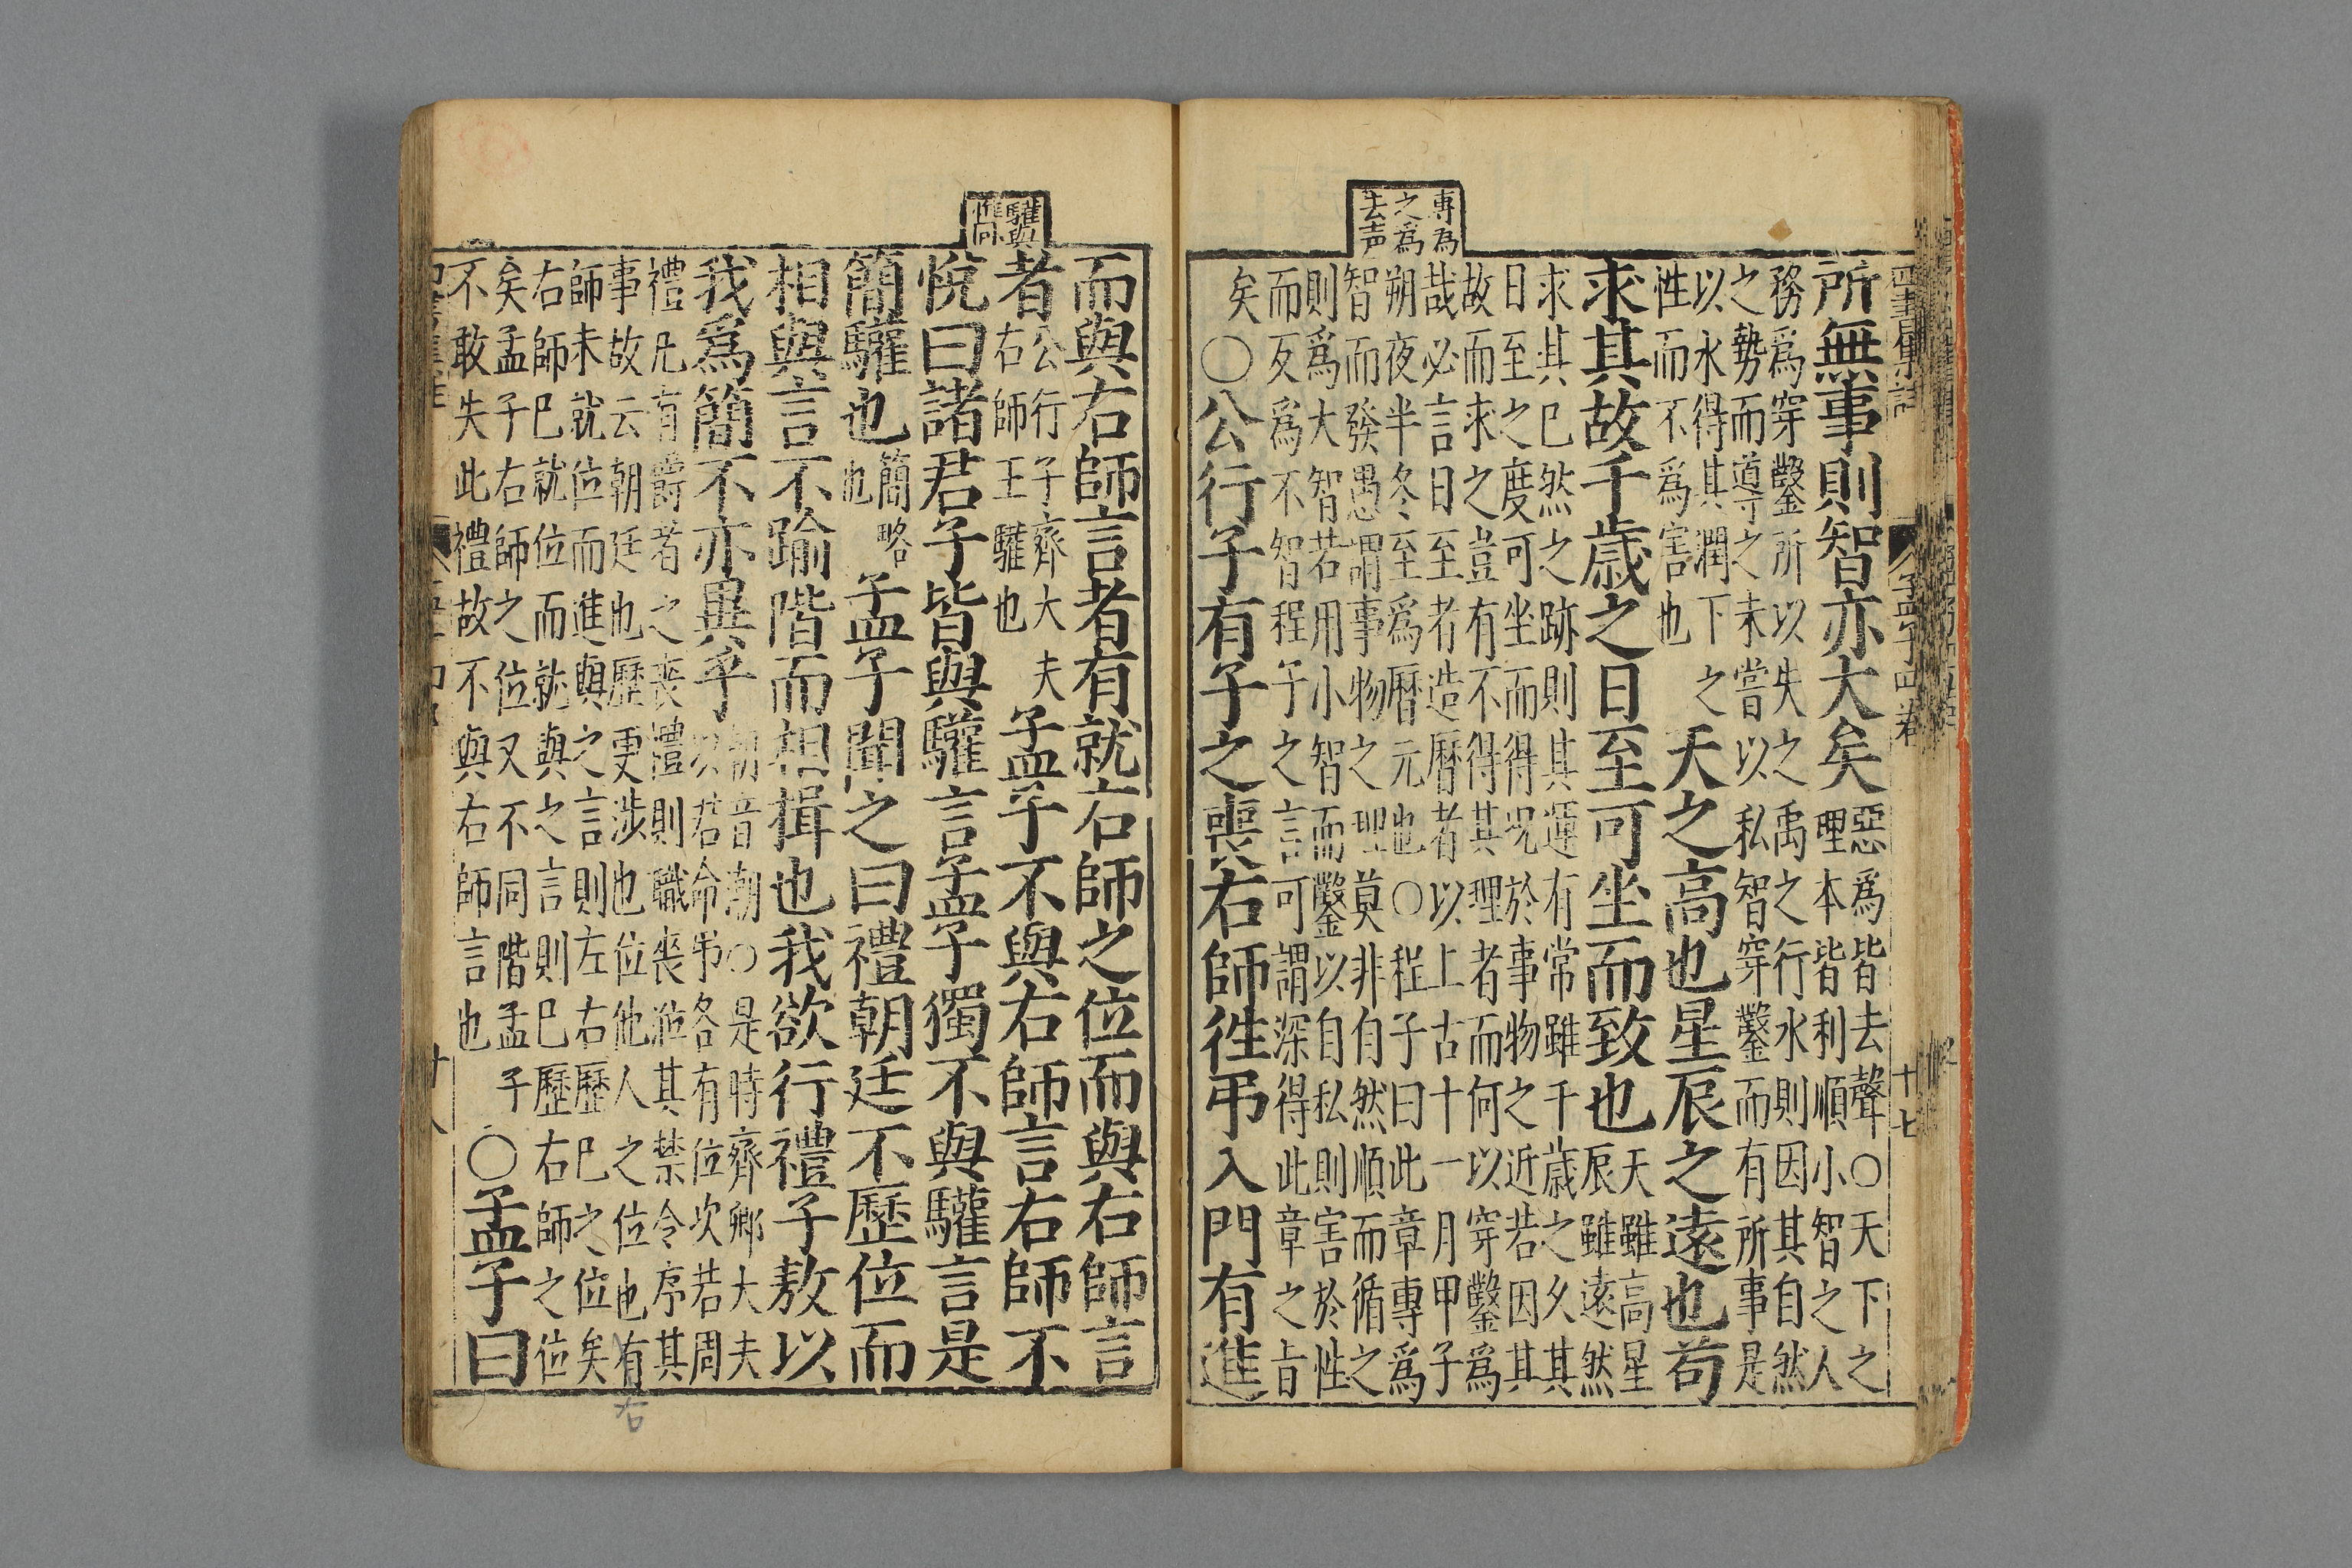 四書集註 孟子四卷 十七
專為
之爲
去声
所無事則智亦大矣惡爲皆去聲○天下之
理本皆利順小智之人
務爲穿鑿所以失之禹之行水則因其自然
之勢而導之未嘗以私智穿鑿而有所事是
以水得其潤下之
性而不爲害也
天之高也星辰之遠也苟
求其故千歲之日至可坐而致也天雖高星
辰雖遠然
求其已然之跡則其運有常雖千歲之久其
日至之度可坐而得況於事物之近若因其
故而求之豈有不得其理者而何以穿鑿爲
哉必言日至者造曆者以上古十一月甲子
朔夜半冬至爲曆元也○程子曰此章專爲
智而發愚謂事物之理莫非自然順而循之
則爲大智若用小智而鑿以自私則害於性
而反爲不智程子之言可謂深得此章之旨
矣○公行子有子之喪右師徃弔入門有進
而與右師言者有就右師之位而與右師言
者公行子齊大夫
右師王驩也
孟子不與右師言右師不
驩與
悅曰諸君子皆與驩言孟子獨不與驩言是
簡驩也簡略
也
孟子聞之曰禮朝廷不歷位而
相與言不踰階而相揖也我欲行禮子敖以
我爲簡不亦異乎朝音潮○是時齊卿大夫
以君命弔各有位次若周
禮凡有爵者之喪禮則職喪涖其禁令序其
事故云朝廷也歷更涉也位他人之位也有
右
師未就位而進與之言則左右歷已之位矣
右師巳就位而就與之言則巳歷右師之位
矣孟子右師之位又不同階孟子
不敢失此禮故不與右師言也
○孟子曰
十八